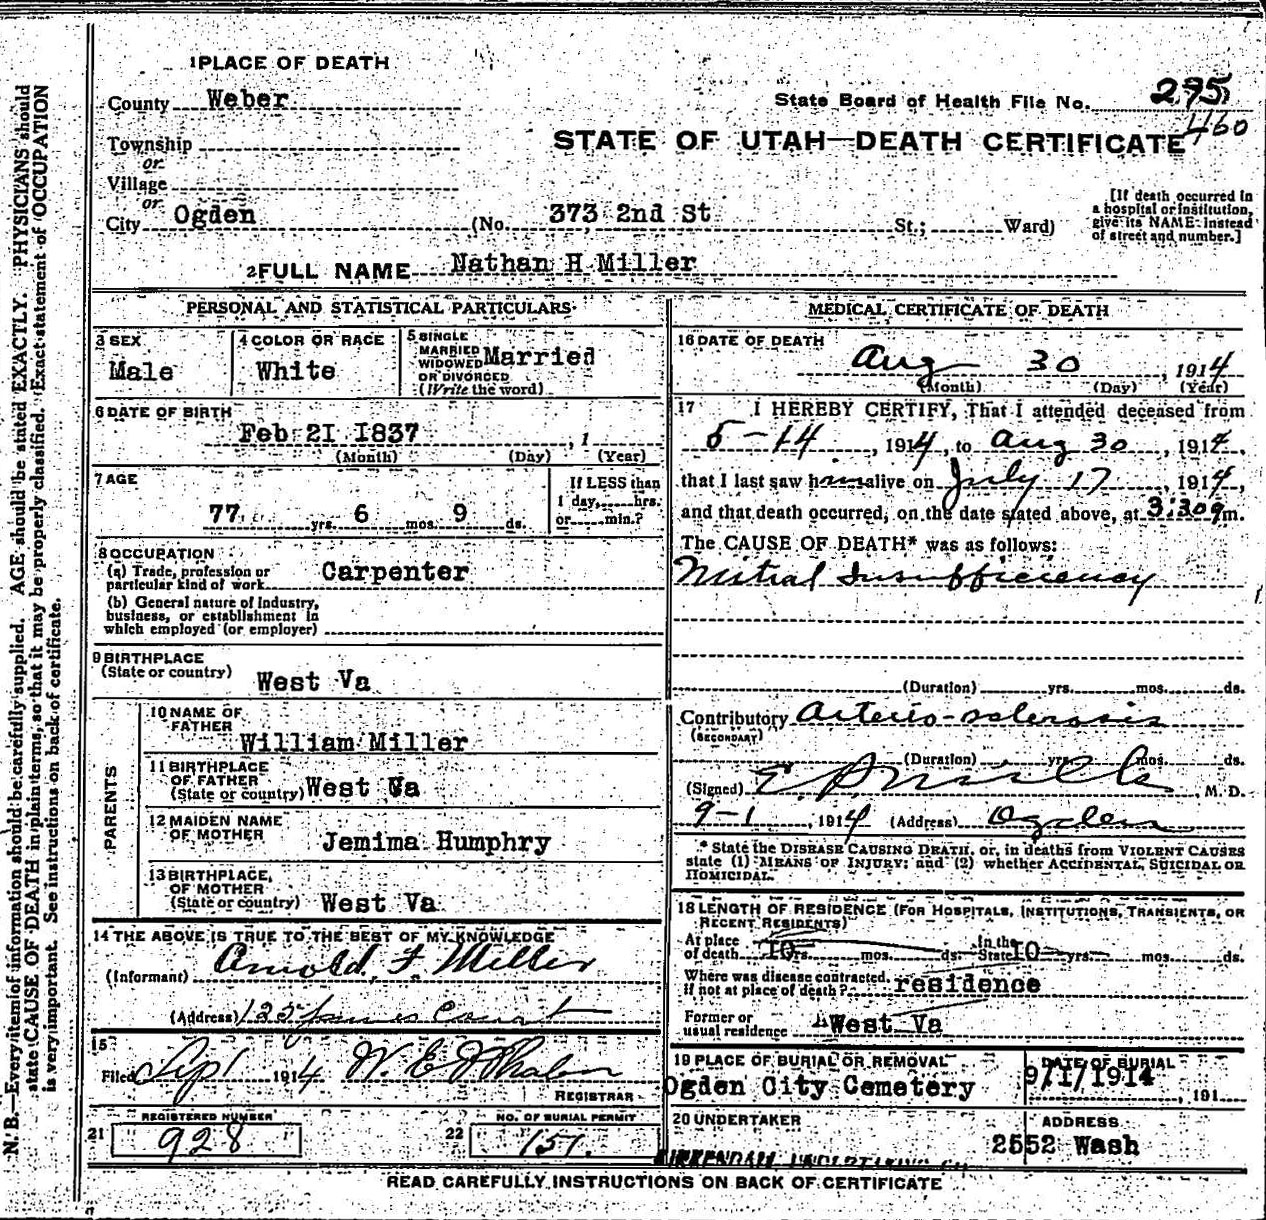 1 PLACE OF DEATH
County Weber
State Board of Health File No. 295
460
Township
or
Village
or
City Ogden (No. 373 2nd St St.; Ward)
STATE OF UTAH—DEATH CERTIFICATE
[If death occurred in
a hospital or institution,
give its NAME instead
of street and number.]
2 FULL NAME Nathan H Miller
PERSONAL AND STATISTICAL PARTICULARS
3 SEX
Male
4 COLOR OR RACE
White
5 SINGLE
MARRIED
WIDOWED
OR DIVORCED
(Write the word)
Married
6 DATE OF BIRTH
Feb 21 1837 , 1
(Month) (Day) (Year)
7 AGE
77 yrs. 6 mos. 9 ds.
If LESS than
1 day, hrs.
or min.?
8 OCCUPATION
(a) Trade, profession or
particular kind of work Carpenter
(b) General nature of Industry,
business, or establishment in
which employed (or employer)
9 BIRTHPLACE
(State or country)
West Va
PARENTS
10 NAME OF
FATHER
William Miller
11 BIRTHPLACE
OF FATHER
(State or country) West Va
12 MAIDEN NAME
OF MOTHER
Jemima Humphry
13 BIRTHPLACE
OF MOTHER
(State or country) West Va
14 THE ABOVE IS TRUE TO THE BEST OF MY KNOWLEDGE
(Informant) Arnold F. Miller
(Address) 125 James Court
15
Filed Sep 1 1914
REGISTRAR
REGISTERED NUMBER
21 928
NO. OF BURIAL PERMIT
22 151.
MEDICAL CERTIFICATE OF DEATH
16 DATE OF DEATH
Aug 30 , 1914
(Month) (Day) (Year)
17 I HEREBY CERTIFY, That I attended deceased from
5-14 , 1914, to Aug 30 , 1914,
that I last saw him alive on July 17 , 1914,
and that death occurred, on the date stated above, at 3:30 m.
The CAUSE OF DEATH* was as follows:
Mitral Insufficiency
(Duration) yrs. mos. ds.
Contributory Arterio-sclerosis
(SECONDARY)
(Duration) yrs. mos. ds.
(Signed) E. P. Mills , M. D.
9-1 , 1914 (Address) Ogden
* State the DISEASE CAUSING DEATH, or, in deaths from VIOLENT CAUSES
state (1) MEANS OF INJURY; and (2) whether ACCIDENTAL, SUICIDAL OR
HOMICIDAL.
18 LENGTH OF RESIDENCE (FOR HOSPITALS, INSTITUTIONS, TRANSIENTS, OR
RECENT RESIDENTS)
At place
of death 10 yrs. mos. ds. In the
State 10 yrs. mos. ds.
Where was disease contracted
if not at place of death? residence
Former or
usual residence West Va
19 PLACE OF BURIAL OR REMOVAL
Ogden City Cemetery
DATE OF BURIAL
9/1/1914 , 191
20 UNDERTAKER
ADDRESS
2552 Wash
READ CAREFULLY INSTRUCTIONS ON BACK OF CERTIFICATE
N. B.—Every item of information should be carefully supplied. AGE should be stated EXACTLY. PHYSICIANS should
state CAUSE OF DEATH in plain terms, so that it may be properly classified. Exact statement of OCCUPATION
is very important. See instructions on back of certificate.